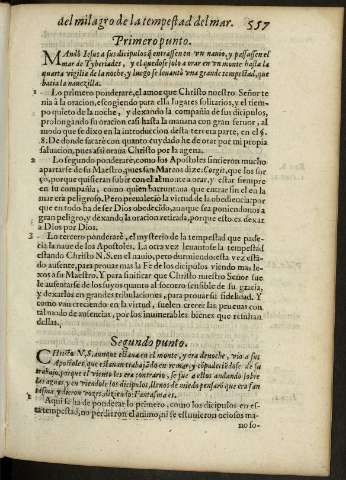 del milagro de la tempestad del mar. 557
Primero punto.
MAndò Iesus a sus dicipulos q̃ entrassen en vn nauio, y passassen el
mar de Tyberiades, y el quedose solo a orar en vn monte hasta la
quarta vigilia de la noche, y luego se leuantò vna grande tempestad, que
batia la nauezilla.
1 Lo primero ponderarè, el amor que Christo nuestro Señor te
nia à la oracion, escogiendo para ella lugares solitarios, y el tiem-
po quieto de la noche, y dexando la compañia de sus dicipulos,
prolongando su oracion casi hasta la mañana con gran feruor, al
modo que se dixo en la introduccion desta tercera parte, en el §.
8. De donde sacarè con quanto cuydado he de orar por mi propia
saluacion, pues assi oraua Christo por la agena.
2 Lo segundo ponderarè, como los Apostoles sintieron mucho
apartarse de su Maestro, pues san Marcos dize: Coegit, que los for
çò, porque quisieran subir con el al monte a orar, y estar siempre
en su compañia, como quien barruntaua que entrar sin el en la
mar era peligroso; Pero preualeciò la virtud de la obediencia: por
que en todo ha de ser Dios obedecido, aunque sea poniendonos a
gran peligro, y dexando la oracion retirada, porque esto es dexar
a Dios por Dios.
3 Lo tercero ponderarè, el mysterio de la tempestad que pade-
cia la naue de los Apostoles. La otra vez leuantose la tempestad
estando Christo N. S. en el nauio, pero durmiendo: esta vez està-
do ausente, para prouar mas la Fe de los dicipulos viendo mas le-
xos a su Maestro. Y para sinificar que Christo nuestro Señor sue
le ausentarse de los suyos quanto al socorro sensible de su gracia,
y dexarlos en grandes tribulaciones, para prouar su fidelidad. Y
como van creciendo en la virtud, suelen crecer las prueuas con
tal modo de ausencias, por los inumerables bienes que resultan
dellas.
Segundo punto.
CHristo N. S. aunque estaua en el monte, y era de noche, vio a sus
Apostoles que estauan trabajãdo en remar, y cõpadeciendose de su
trabajo, porque el viento les era contrario, se fue a ellos andando sobre
las aguas, y en viendole los dicipulos, llenos de miedo pensarõ que era fan
tasma y dieron vozes, diziendo: Fantasma es.
1 Aqui se ha de ponderar lo primero, como los dicipulos en es-
ta tempestad, no perdieron el animo, ni se estuuieron ociosos ma-
no so-